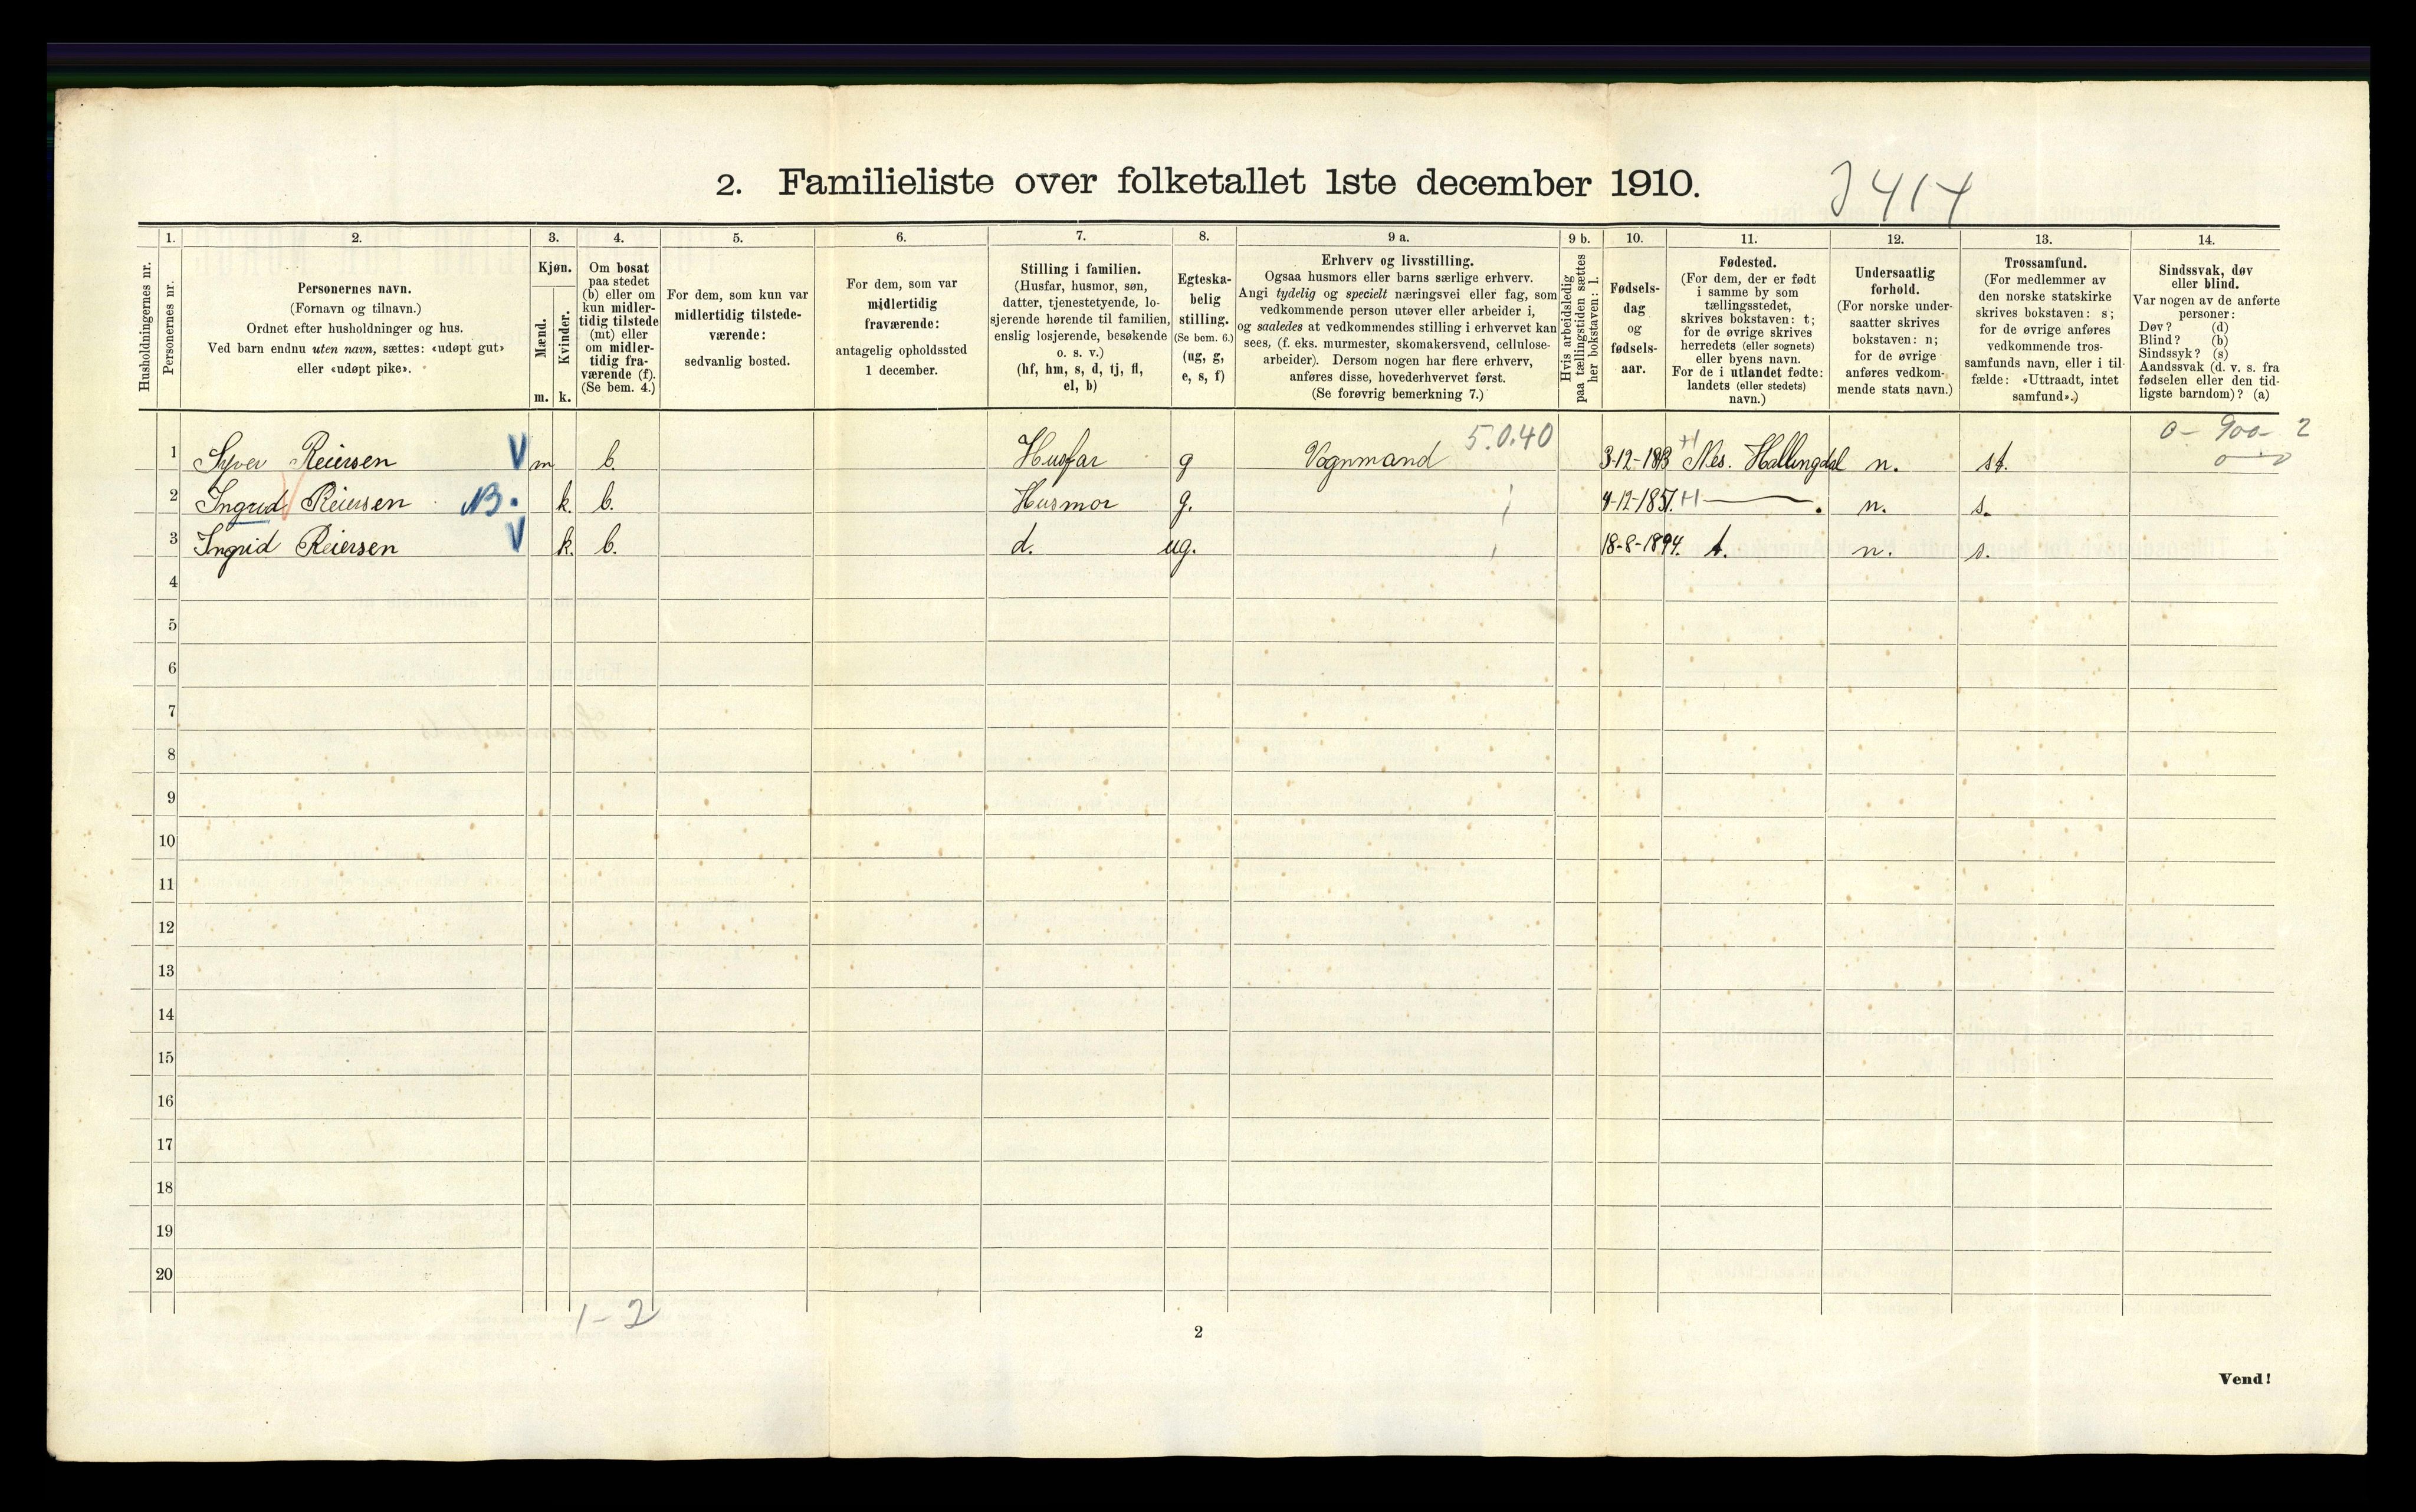 2. Familieliste over folketallet 1ste december 1910.
3414
Husholdningernes nr.
1.
Personernes nr.
2.
Personernes navn.
(Fornavn og tilnavn.)
Ordnet efter husholdninger og hus.
Ved barn endnu uten navn, sættes: «udøpt gut»
eller «udøpt pike».
3.
Kjøn.
Mænd.
Kvinder.
m. k.
4.
Om bosat
paa stedet
(b) eller om
kun midler-
tidig tilstede
(mt) eller
om midler-
tidig fra-
værende (f).
(Se bem. 4.)
5.
For dem, som kun var
midlertidig tilstede-
værende:
sedvanlig bosted.
6.
For dem, som var
midlertidig
fraværende:
antagelig opholdssted
1 december.
7.
Stilling i familien.
(Husfar, husmor, søn,
datter, tjenestetyende, lo-
sjerende hørende til familien,
enslig losjerende, besøkende
o. s. v.)
(hf, hm, s, d, tj, fl,
el, b)
8.
Egteska-
belig
stilling.
(Se bem. 6.)
(ug, g,
e, s, f)
9 a.
Erhverv og livsstilling.
Ogsaa husmors eller barns særlige erhverv.
Angi tydelig og specielt næringsvei eller fag, som
vedkommende person utøver eller arbeider i,
og saaledes at vedkommendes stilling i erhvervet kan
sees, (f. eks. murmester, skomakersvend, cellulose-
arbeider). Dersom nogen har flere erhverv,
anføres disse, hovederhvervet først.
(Se forøvrig bemerkning 7.)
9 b.
Hvis arbeidsledig
paa tællingstiden sættes
her bokstaven: l.
10.
Fødsels-
dag
og
fødsels-
aar.
11.
Fødested.
(For dem, der er født
i samme by som
tællingsstedet,
skrives bokstaven: t;
for de øvrige skrives
herredets (eller sognets)
eller byens navn.
For de i utlandet fødte:
landets (eller stedets)
navn.)
12.
Undersaatlig
forhold.
(For norske under-
saatter skrives
bokstaven: n;
for de øvrige
anføres vedkom-
mende stats navn.)
13.
Trossamfund.
(For medlemmer av
den norske statskirke
skrives bokstaven: s;
for de øvrige anføres
vedkommende tros-
samfunds navn, eller i til-
fælde: «Uttraadt, intet
samfund».)
14.
Sindssvak, døv
eller blind.
Var nogen av de anførte
personer:
Døv? (d)
Blind? (b)
Sindssyk? (s)
Aandssvak (d. v. s. fra
fødselen eller den tid-
ligste barndom)? (a)
5.0.40 0 - 900 - 2
0 - 0
1 Syver Reiersen V m b. Husfar g Vognmand Nes. Hallingdal n. st.
2 Ingrid Reiersen NB. k. b. Husmor g. 4-12-1851. n. s.
3 Ingrid Reiersen V k. b. d. ug. 18-8-1894. t. n. s.
4
5
6
7
8
9
10
11
12
13
14
15
16
17
18
19
20
1 - 2
2
Vend!